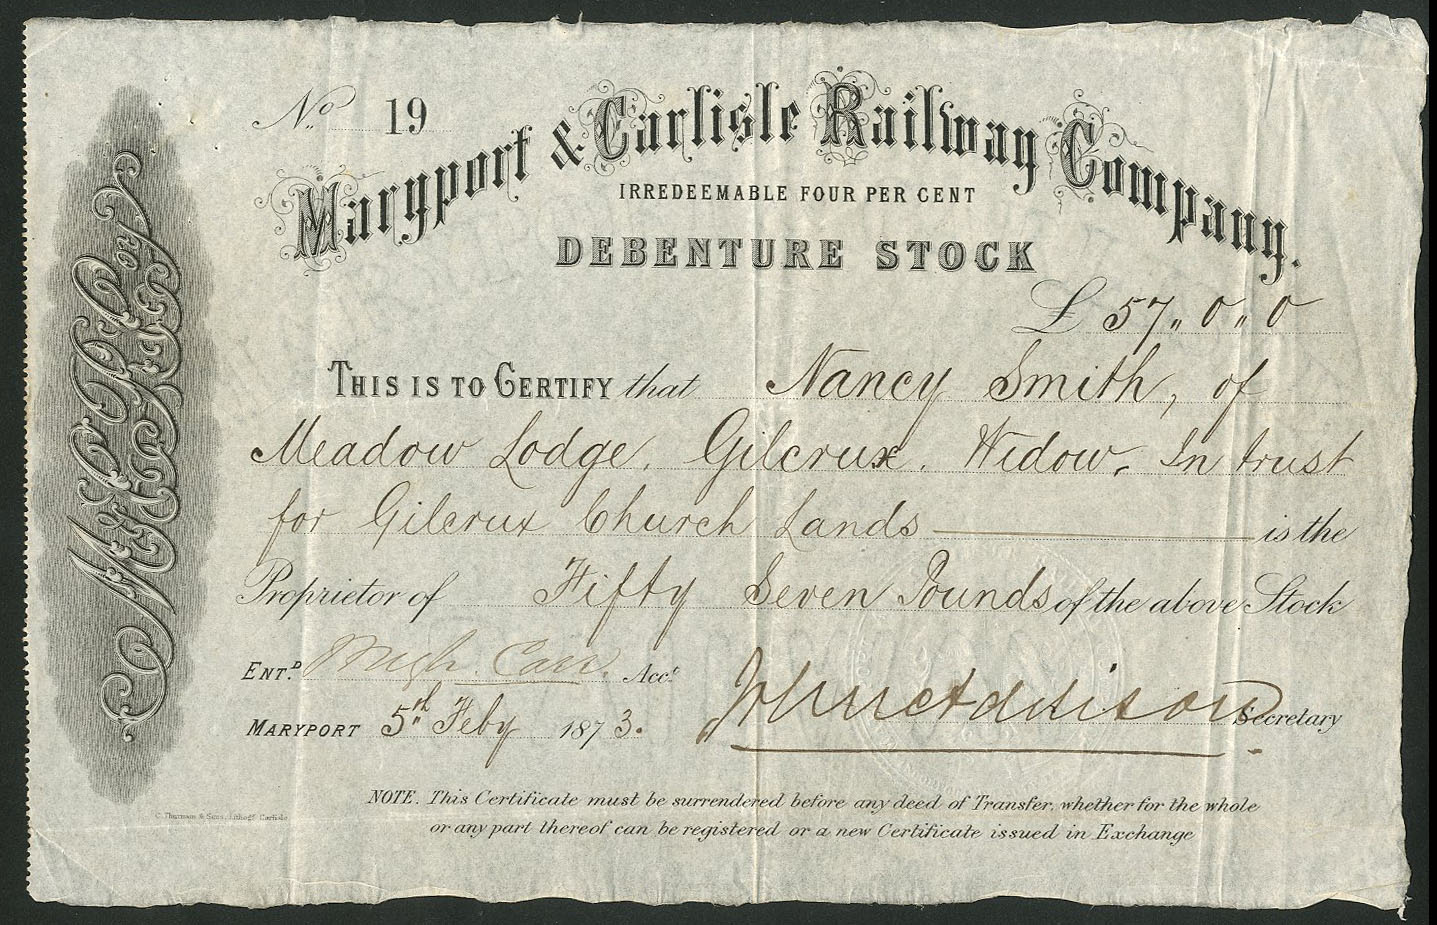 No. 19
Maryport & Carlisle Railway Company.
IRREDEEMABLE FOUR PER CENT
DEBENTURE STOCK
£ 57 ,, 0 ,, 0
THIS IS TO CERTIFY that Nancy Smith, of
Meadow Lodge, Gilcrux, Widow. In trust
for Gilcrux Church Lands is the
Proprietor of Fifty Seven Pounds of the above Stock
ENT.D Hugh Carr. Acct.
Secretary
MARYPORT 5th Feby 1873.
NOTE. This Certificate must be surrendered before any deed of Transfer, whether for the whole
or any part thereof can be registered or a new Certificate issued in Exchange
C. Thurnam & Sons, Lithogr. Carlisle